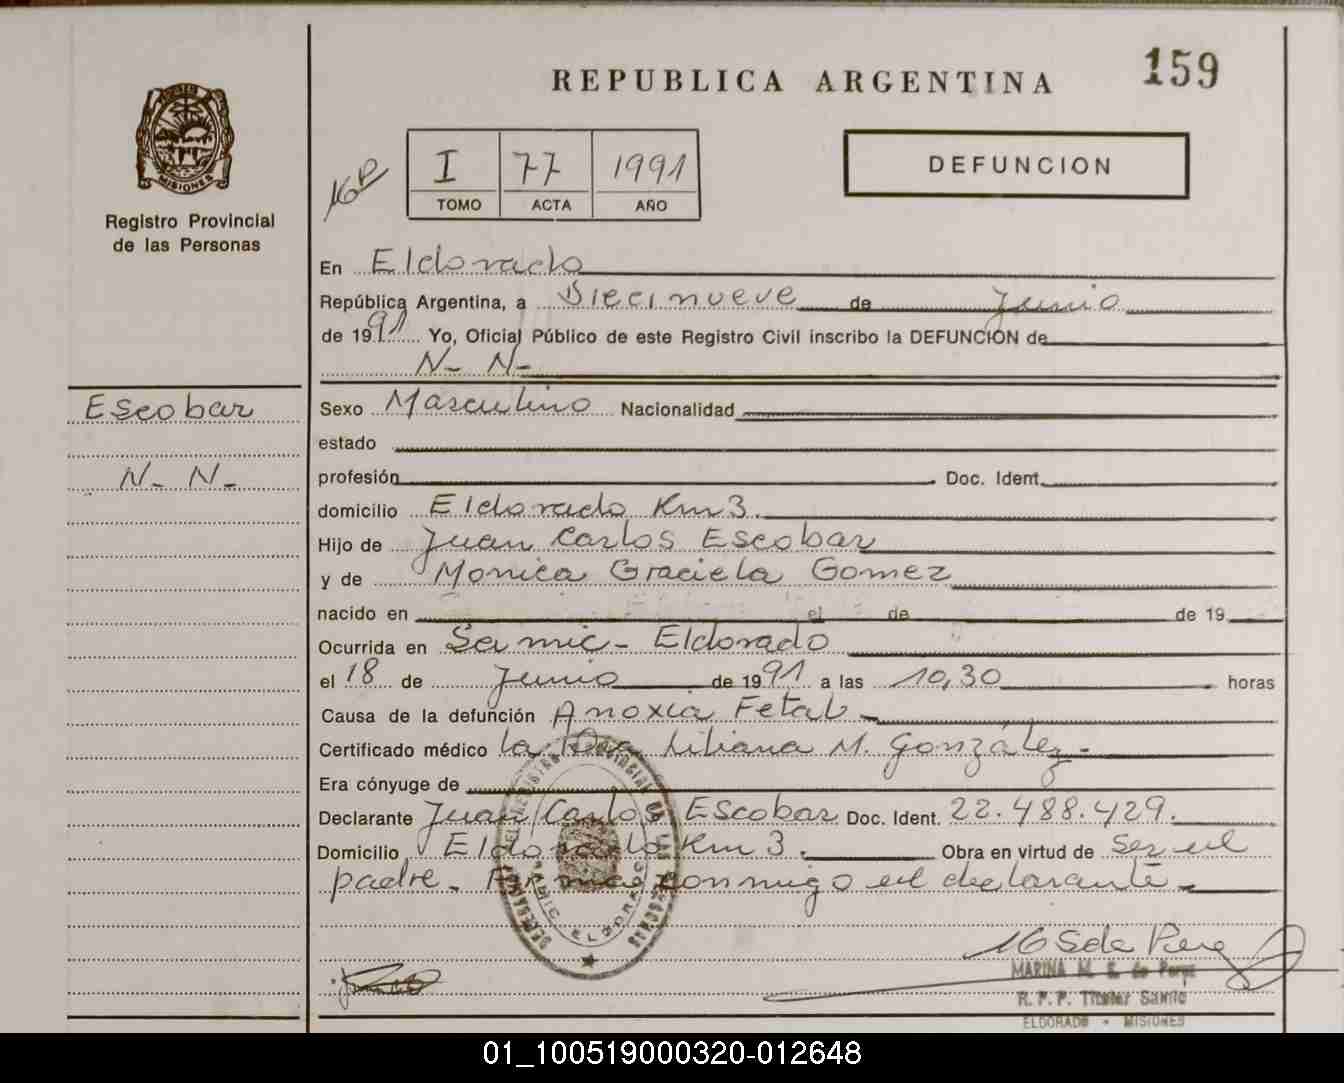 REPUBLICA ARGENTINA
159
MISIONES
Registro Provincial
de las Personas
I 77 1991
TOMO ACTA AÑO
DEFUNCION
En Eldorado
República Argentina, a Diecinueve de Junio
de 1991 Yo, Oficial Público de este Registro Civil inscribo la DEFUNCION de
N- N-
Escobar
N- N-
Sexo Masculino Nacionalidad
estado
profesión Doc. Ident.
domicilio Eldorado Km 3.
Hijo de Juan Carlos Escobar
y de Monica Graciela Gomez
nacido en el de de 19
Ocurrida en Samic- Eldorado
el 18 de Junio de 1991 a las 10,30 horas
Causa de la defunción Anoxia Fetal
Certificado médico la Dra Liliana M. González.
Era cónyuge de
Declarante Juan Carlos Escobar Doc. Ident. 22.488.429.
Domicilio Eldorado Km 3. Obra en virtud de ser el
padre. Firma conmigo el declarante
SAMIC - ELDORADO
MARINA M. S. de Perez
R. P. P. Titular Samic
ELDORADO - MISIONES
01_100519000320-012648